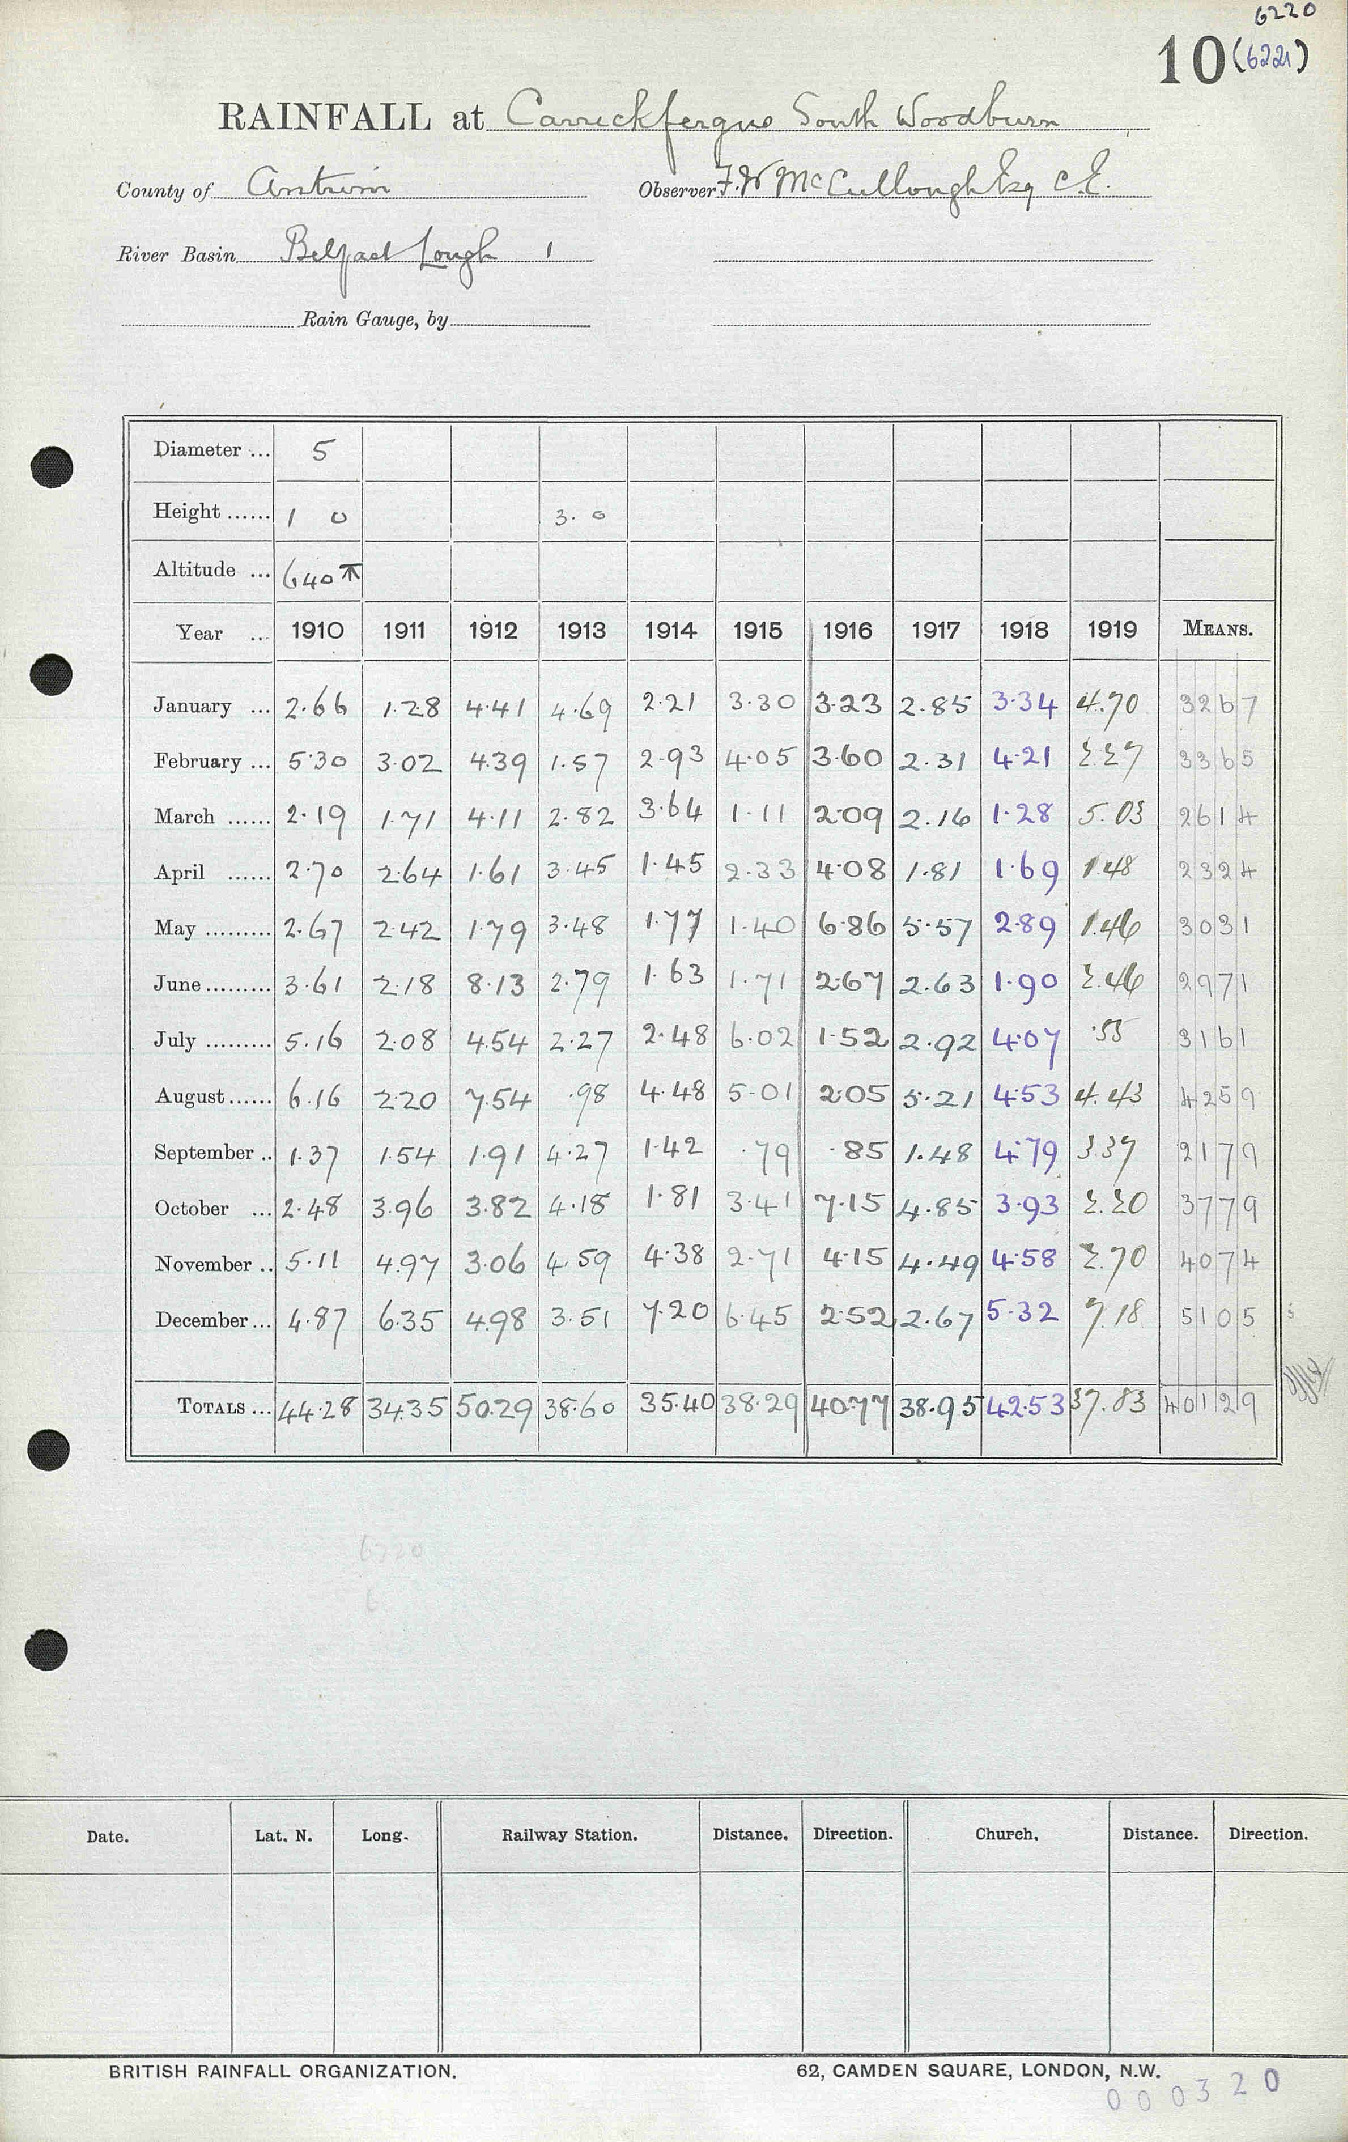 6220
10 (6221)
RAINFALL at Carrickfergus South Woodburn
County of Antrim Observer F. W McCullough Esq C.E.
River Basin Belfast Lough 1
Rain Gauge, by
Diameter ... 5
Height ...... 1 0 3. 0
Altitude ... 640
Year ... 1910 1911 1912 1913 1914 1915 1916 1917 1918 1919 MEANS.
January ... 2.66 1.28 4.41 4.69 2.21 3.30 3.23 2.85 3.34 4.70 3267
February ... 5.30 3.02 4.39 1.57 2.93 4.05 3.60 2.31 4.21 2.27 3365
March ...... 2.19 1.71 4.11 2.82 3.64 1.11 2.09 2.16 1.28 5.03 2614
April ...... 2.70 2.64 1.61 3.45 1.45 2.33 4.08 1.81 1.69 1.48 2324
May ......... 2.67 2.42 1.79 3.48 1.77 1.40 6.86 5.57 2.89 1.46 3031
June ......... 3.61 2.18 8.13 2.79 1.63 1.71 2.67 2.63 1.90 2.46 2971
July ......... 5.16 2.08 4.54 2.27 2.48 6.02 1.52 2.92 4.07 .55 3161
August ...... 6.16 2.20 7.54 .98 4.48 5.01 2.05 5.21 4.53 4.43 4259
September .. 1.37 1.54 1.91 4.27 1.42 .79 .85 1.48 4.79 3.37 2179
October ... 2.48 3.96 3.82 4.18 1.81 3.41 7.15 4.85 3.93 2.20 3779
November .. 5.11 4.97 3.06 4.59 4.38 2.71 4.15 4.49 4.58 2.70 4074
December ... 4.87 6.35 4.98 3.51 7.20 6.45 2.52 2.67 5.32 7.18 5105
TOTALS ... 44.28 34.35 50.29 38.60 35.40 38.29 40.77 38.95 42.53 37.83 40129
6220
6
Date. Lat. N. Long. Railway Station. Distance. Direction. Church. Distance. Direction.
BRITISH RAINFALL ORGANIZATION. 62, CAMDEN SQUARE, LONDON, N.W.
000320